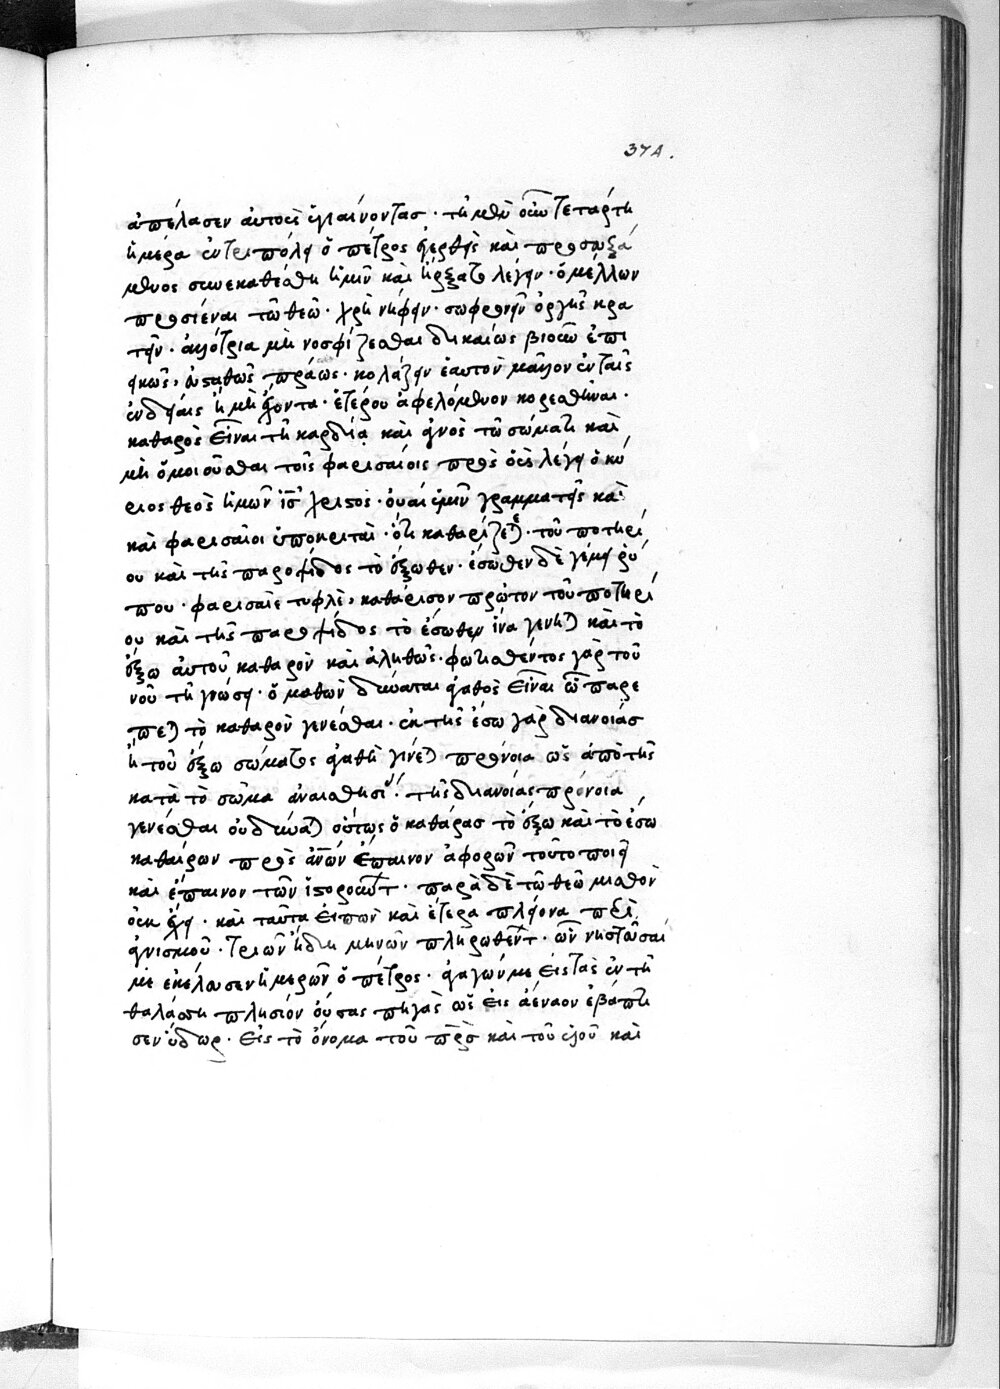 374.
ἀπέλασεν αὐτοὺς ὑγιαίνοντας· τῆ μὲν οὖν τετάρτη
ἡμέρα ἐν τριπόλει ὁ πέτρος ἐγερθεὶς καὶ προσευξά
μενος συνεκαθέσθη ἡμῖν καὶ ἤρξατο λέγειν· ὁ μέλλων
προσιέναι τῶ θεῶ· χρὴ νήφειν· σωφρονεῖν ὀργῆς κρα
τεῖν· ἀλλότρια μὴ νοσφίζεσθαι δικαίως βιοῦν ἐπι
εικῶς, εὐσταθῶς πράως· κολάζειν ἑαυτὸν μᾶλλον ἐνταῖς
ἐνδείαις ἢ μὴ ἔχοντα· ἑτέρου ἀφελόμενον κορεσθῆναι·
καθαρὸς εἶναι τῆ καρδία καὶ ἁγνὸς τῶ σώματι καὶ
μὴ ὁμοιοῦσθαι τοῖς φαρισαίοις πρὸς οὓς λέγει ὁ κύ
ριος θεὸς ἡμῶν ἰς̄ χριστός· οὐαὶ ὑμῖν γραμματεῖς καὶ
καὶ φαρισαῖοι ὑποκριταὶ· ὅτι καθαρίζετε· τοῦ ποτηρί
ου καὶ τῆς παροψίδος τὸ ἔξωθεν· ἔσωθεν δὲ γέμει ῥύ
που· φαρισαῖε τυφλὲ, καθάρισον πρῶτον τοῦ ποτηρί
ου καὶ τῆς παροψίδος τὸ ἔσωθεν ἵνα γένηται καὶ τὸ
ἔξω αὐτοῦ καθαρὸν καὶ ἀληθῶς· φωτισθέντος γὰρ τοῦ
νοῦ τῆ γνώσει· ὁ μαθὼν δύναται ἀγαθὸς εἶναι ὧ παρέ
πεται τὸ καθαρὸν γενέσθαι· ἐκ τῆς ἔσω γὰρ διανοίας
ἡ τοῦ ἔξω σώματος ἀγαθὴ γίνεται πρόνοια ὡς ἀπὸ τῆς
κατὰ τὸ σῶμα ἀναισθησίας· τῆς διανοίας πρόνοια
γενέσθαι οὐ δύναται οὕτως ὁ καθάρας τὸ ἔξω καὶ τὸ ἔσω
καθαίρων πρὸς ἀν̄ων ἔπαινον ἀφορῶν τοῦτο ποιεῖ
καὶ ἔπαινον τῶν ἱστορούντ· παρὰ δὲ τῶ θεῶ μισθὸν
οὐκ ἔχει· καὶ ταῦτα εἰπὼν καὶ ἕτερα πλείονα περὶ
ἁγνισμοῦ· τριῶν ἤδη μηνῶν πληρωθέντ· ὧν νηστεῦσαί
με ἐκέλευσεν ἡμερῶν ὁ πέτρος· ἀγαγών με εἰς τὰς ἐν τῆ
θαλάσση πλησίον οὔσας πηγὰς ὡς εἰς ἀέναον ἐβάπτι
σεν ὕδωρ· εἰς τὸ ὄνομα τοῦ πρ̄ς καὶ τοῦ υἱοῦ καὶ